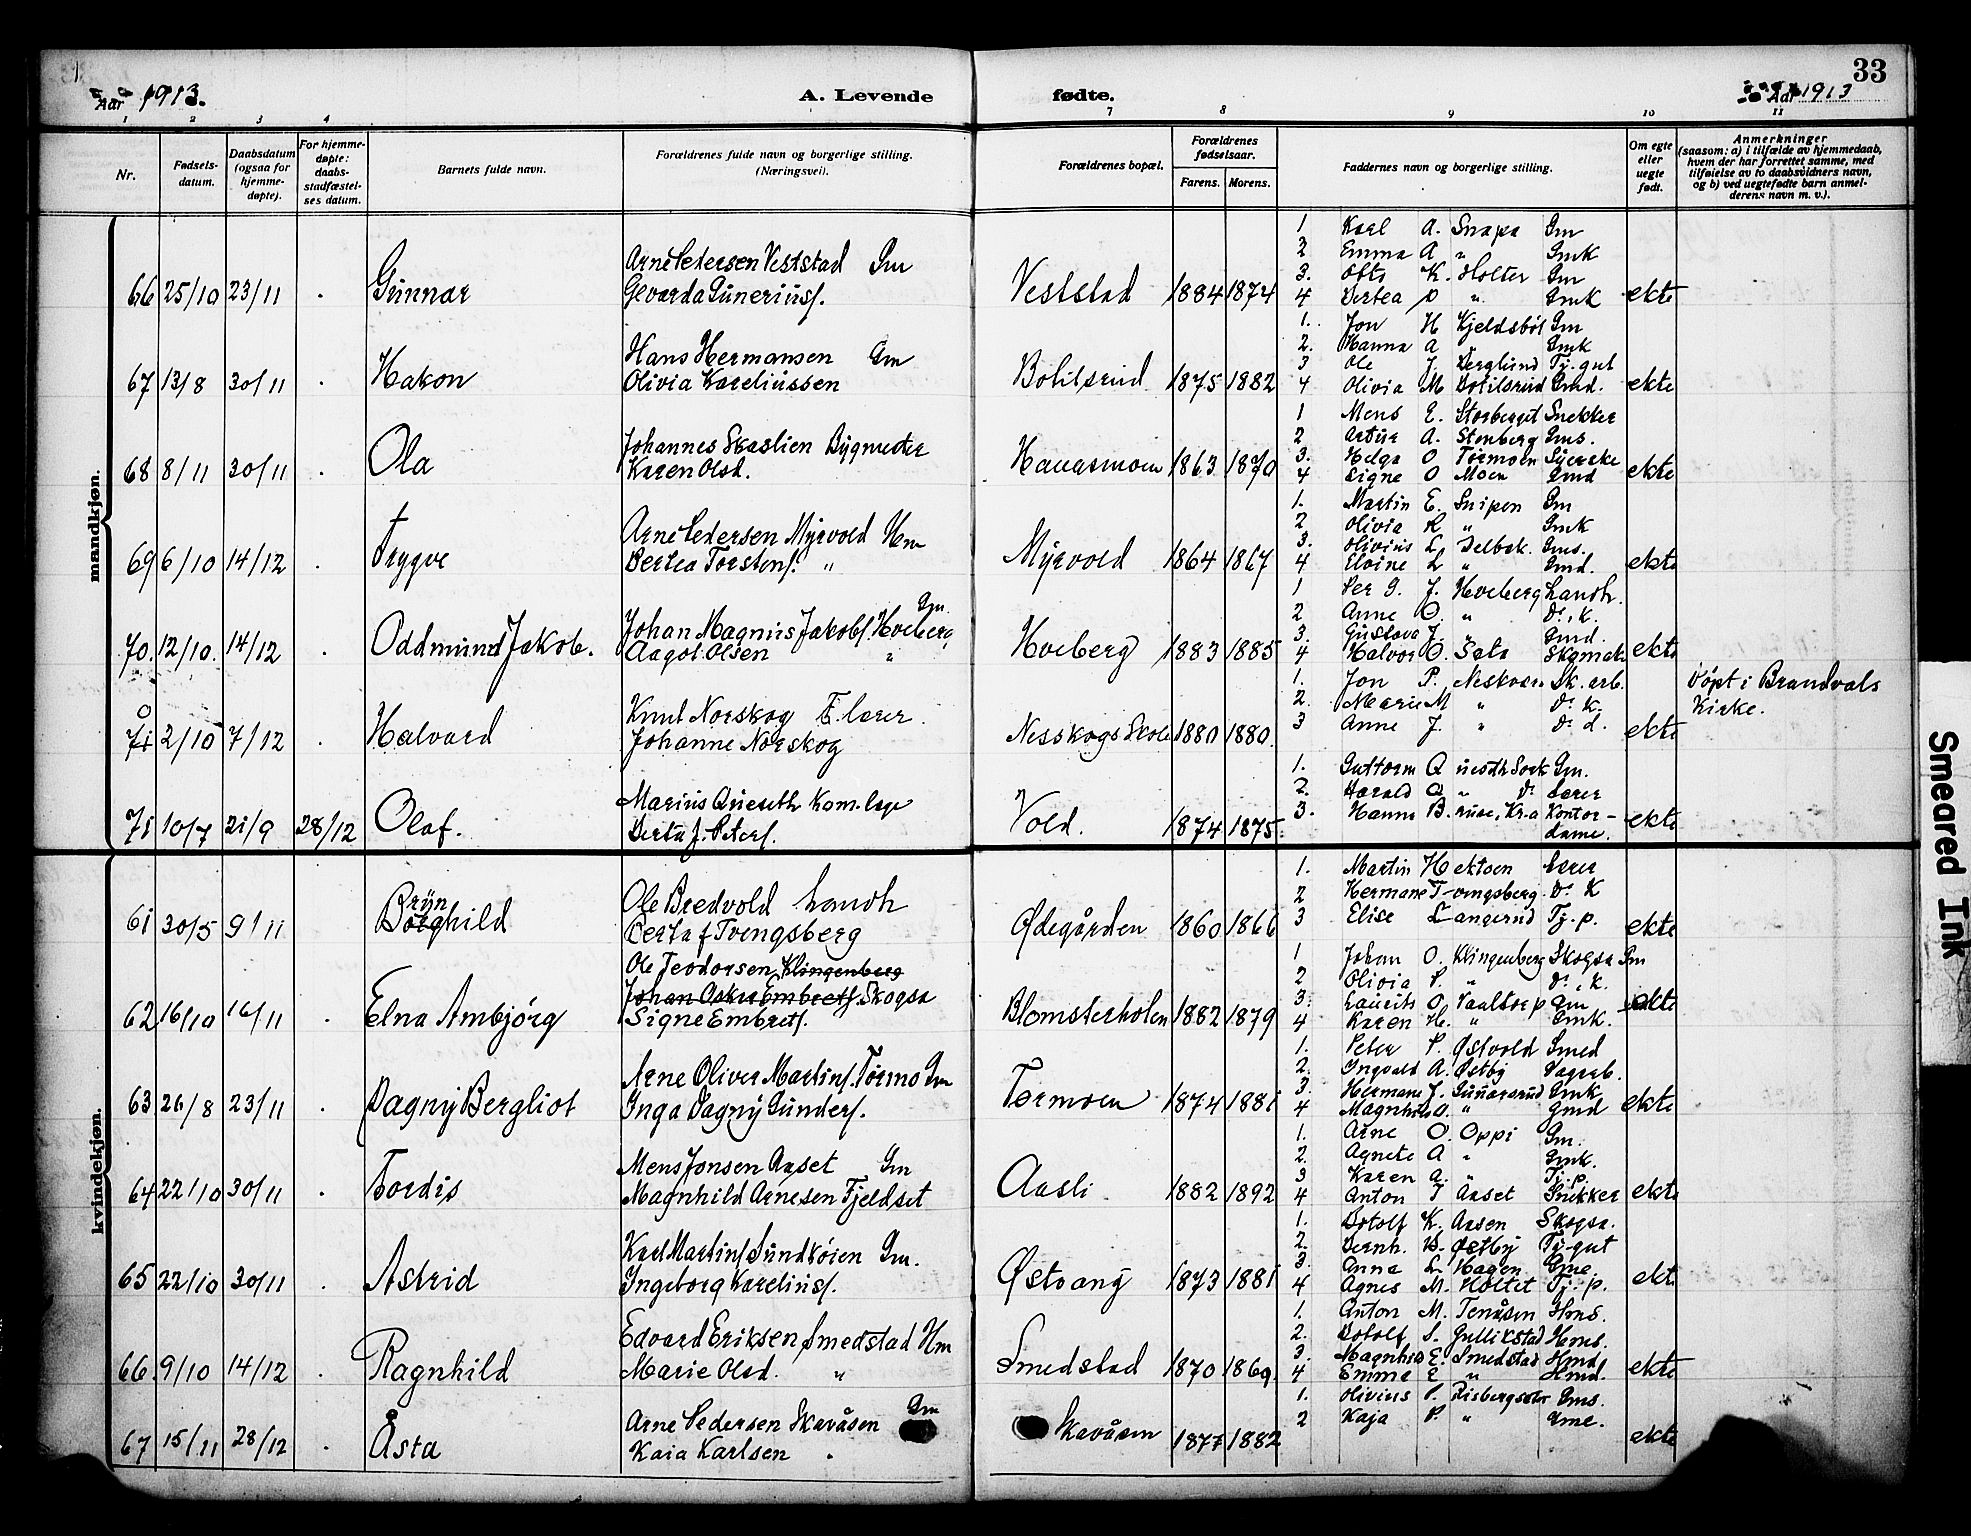 33
Aar 1913.
A. Levende fødte.
Aar 1913
1 2 3 4 7 8 9 10 11
Nr.
Fødsels-datum.
Daabsdatum (ogsaa for hjemme-døpte).
For hjemme-døpte: daabs-stadfæstel-ses datum.
Barnets fulde navn.
Forældrenes fulde navn og borgerlige stilling. (Næringsvei).
Forældrenes bopæl.
Forældrenes fødselsaar.
Farens. Morens.
Faddernes navn og borgerlige stilling.
Om egte eller uegte født.
Anmerkninger (saasom: a) i tilfælde av hjemmedaab, hvem der har forrettet samme, med tilføielse av to daabsvidners navn, og b) ved uegtefødte barn anmel-derens navn m. v.).
mandkjøn.
66 25/10 23/11 Gunnar
Arne Pedersen Veststad Gm
Gevarda Guneriusf.
Veststad 1884 1874 ekte
1 Karl A. Snapa Gm
2 Emma A " Gmk
3. Ofte K. Holter Gm
4 Bertea O " Gmk
67 13/8 30/11 Hakon
Hans Hermansen Gm
Olivia Kareliussen
Botilsrud 1875 1882 ekte
1. Jon H Kjeldsbøl Gm
2. Hanna A Gmk
3 Ole J. Berglund Tj.gut
4 Olivia M Botilsrud Gmd.
68 8/11 30/11 Ola
Johannes Skaslien Bygmester
Karen Olsd.
Haugsmoen 1863 1870 ekte
1 Mens E. Storberget Snekker
2 Artur A. Stenberg Gms.
3. Helga O Tørmoen Syerske
4 Signe O Moen Gmd
69 6/10 14/12 Trygve
Arne Pedersen Myrvold Hm
Bertea Torstensf. "
Myrvold 1864 1867 ekte
1. Martin E. Snipen Gm
2. Olivia R " Gmk
3. Olivius L. Selbak. Gms.
4 Eloine L " Gmd.
70. 12/10. 14/12 Oddmund Jakob.
Johan Magnus Jakobsf. Hveberg Gm
Aagot Olsen "
Hveberg 1883 1885 ekte
1 Per G. J. Hveberg Landh.
2 Anne O. " Do. K.
3. Gustava J. " Gmd.
4 Halvor O. Sata Skomak
71 2/10 7/12 Halvard
Knut Norskog E. lærer.
Johanne Norskog
Nesskogs Skole 1880 1880. ekte
1. Jon P. Neskogen Sk. arb.
2. Marie M " Do. K.
3 Anne J. " Do. d.
Døpt i Brandvals Kirke.
71 10/7 21/9 28/12 Olaf.
Marius Queseth Kom.læge
Berta f. Petersf.
Vold. 1874 1875. ekte
1. Guttorm Q uesth Gm.
2. Harald Q " Lærer
3. Hanna B. ruse, Kr.a Kontor-dame.
kvindekjøn.
61 30/5 9/11 Borghild Bryn
Ole Bredvold Landh
Berta f Tvengsberg
Ødegården 1860 1866 ekte
1. Martin H oktoen Lærer
2 Hermane T-vengsberg. Do. K
3 Elise L-angerud Tj.p.
62 16/10 16/11 Elna Ambjørg
Ole Teodorsen Klingenberg
Johan Oskar Embretsf. Skogsa
Signe Embretsf.
Blomsterholen 1882 1879 ekte
1 Johan O. Klingenberg Skogsa Gm
2 Olivia P. " Do. K.
3. Laurits O. Vaaltorp Gm
4 Karen H. " Gmk.
63 26/8 23/11 Dagny Bergliot
Arne Oliver Martinsf. Tørmo Gm
Inga Dagny Gundersf.
Tørmoen 1874 1881 ekte
1. Peter P. Østvold Smed
2. Ingvald A. Østby Dagarb.
3. Hermana J. Gunnarsrud Gmk
4 Magnhild O. " Gmd
64 22/10 30/11 Tordis
Mens Jonsen Aaset Gm
Magnhild Arnesen Fjeldset
Aasli. 1882 1892 ekte
1. Arne O. Oppi Gm.
2. Agnete A " Gmk.
3 Karen A. " Tj.p.
4 Anton J Aaset Snekker
65 22/10 30/11 Astrid
Karl Martinsf. Sundkøien Gm.
Ingeborg Kareliusf.
Østvang 1873 1881 ekte
1. Botolf K. Aasen Skogsa.
2. Bernh. B. Østby Tj.gut
3. Anna L. Hagen Gme.
4 Agnes M. Holtet Tj.p.
66. 9/10 14/12 Ragnhild
Edvard Eriksen Smedstad Hm
Marie Olsd. "
Smedstad 1870 1869. ekte
1. Anton M. Tenåsen Hms.
2. Botolf S. Gullikstad Hms.
3. Magnhild E. Smedstad Hmd
4 Emma E " Hmd.
67 15/11 28/12 Åsta
Arne Pedersen Skavåsen Gm
Kaia Karlsen
Skavåsen 1877 1882 ekte
1. Olivius P. Risbergseter Gms.
2 Kaja P. " Gme.
Smeared Ink